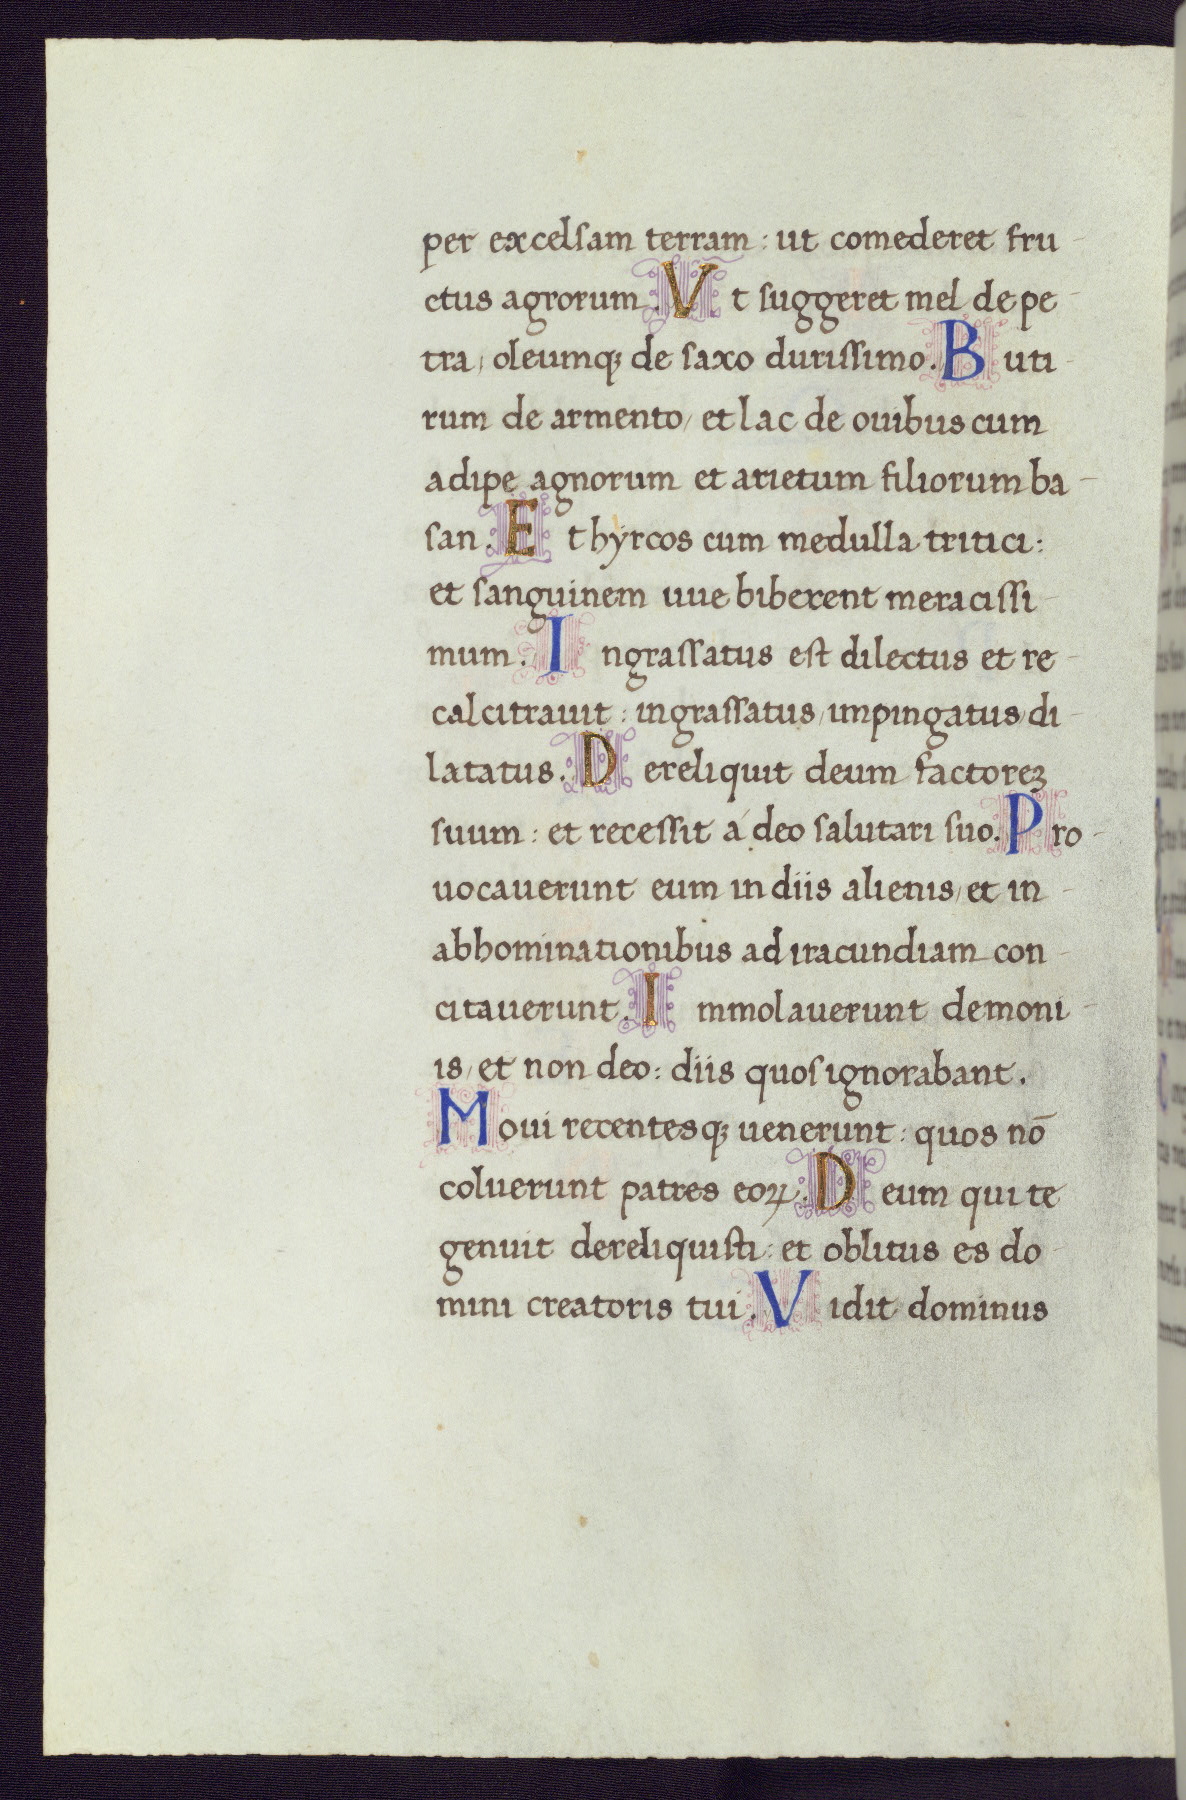 per excelsam terram: ut comederet fru-
ctus agrorum. Ut suggeret mel de pe-
tra, oleumq; de saxo durissimo. Buti-
rum de armento, et lac de ouibus cum
adipe agnorum et arietum filiorum ba-
san. Et hyrcos cum medulla tritici:
et sanguinem uue biberent meracissi-
mum. Ingrassatus est dilectus et re-
calcitrauit: ingrassatus, impingatus, di-
latatus. Dereliquit deum factoreꝫ
suum: et recessit á deo salutari suo. Pro-
uocauerunt eum in diis alienis, et in-
abhominationibus ad iracundiam con-
citauerunt. Immolauerunt demoni-
is, et non deo: diis quos ignorabant.
Moui recentesq; uenerunt: quos nō
coluerunt patres eoꝝ. Deum qui te
genuit dereliquisti: et oblitus es do-
mini creatoris tui. Vidit dominus